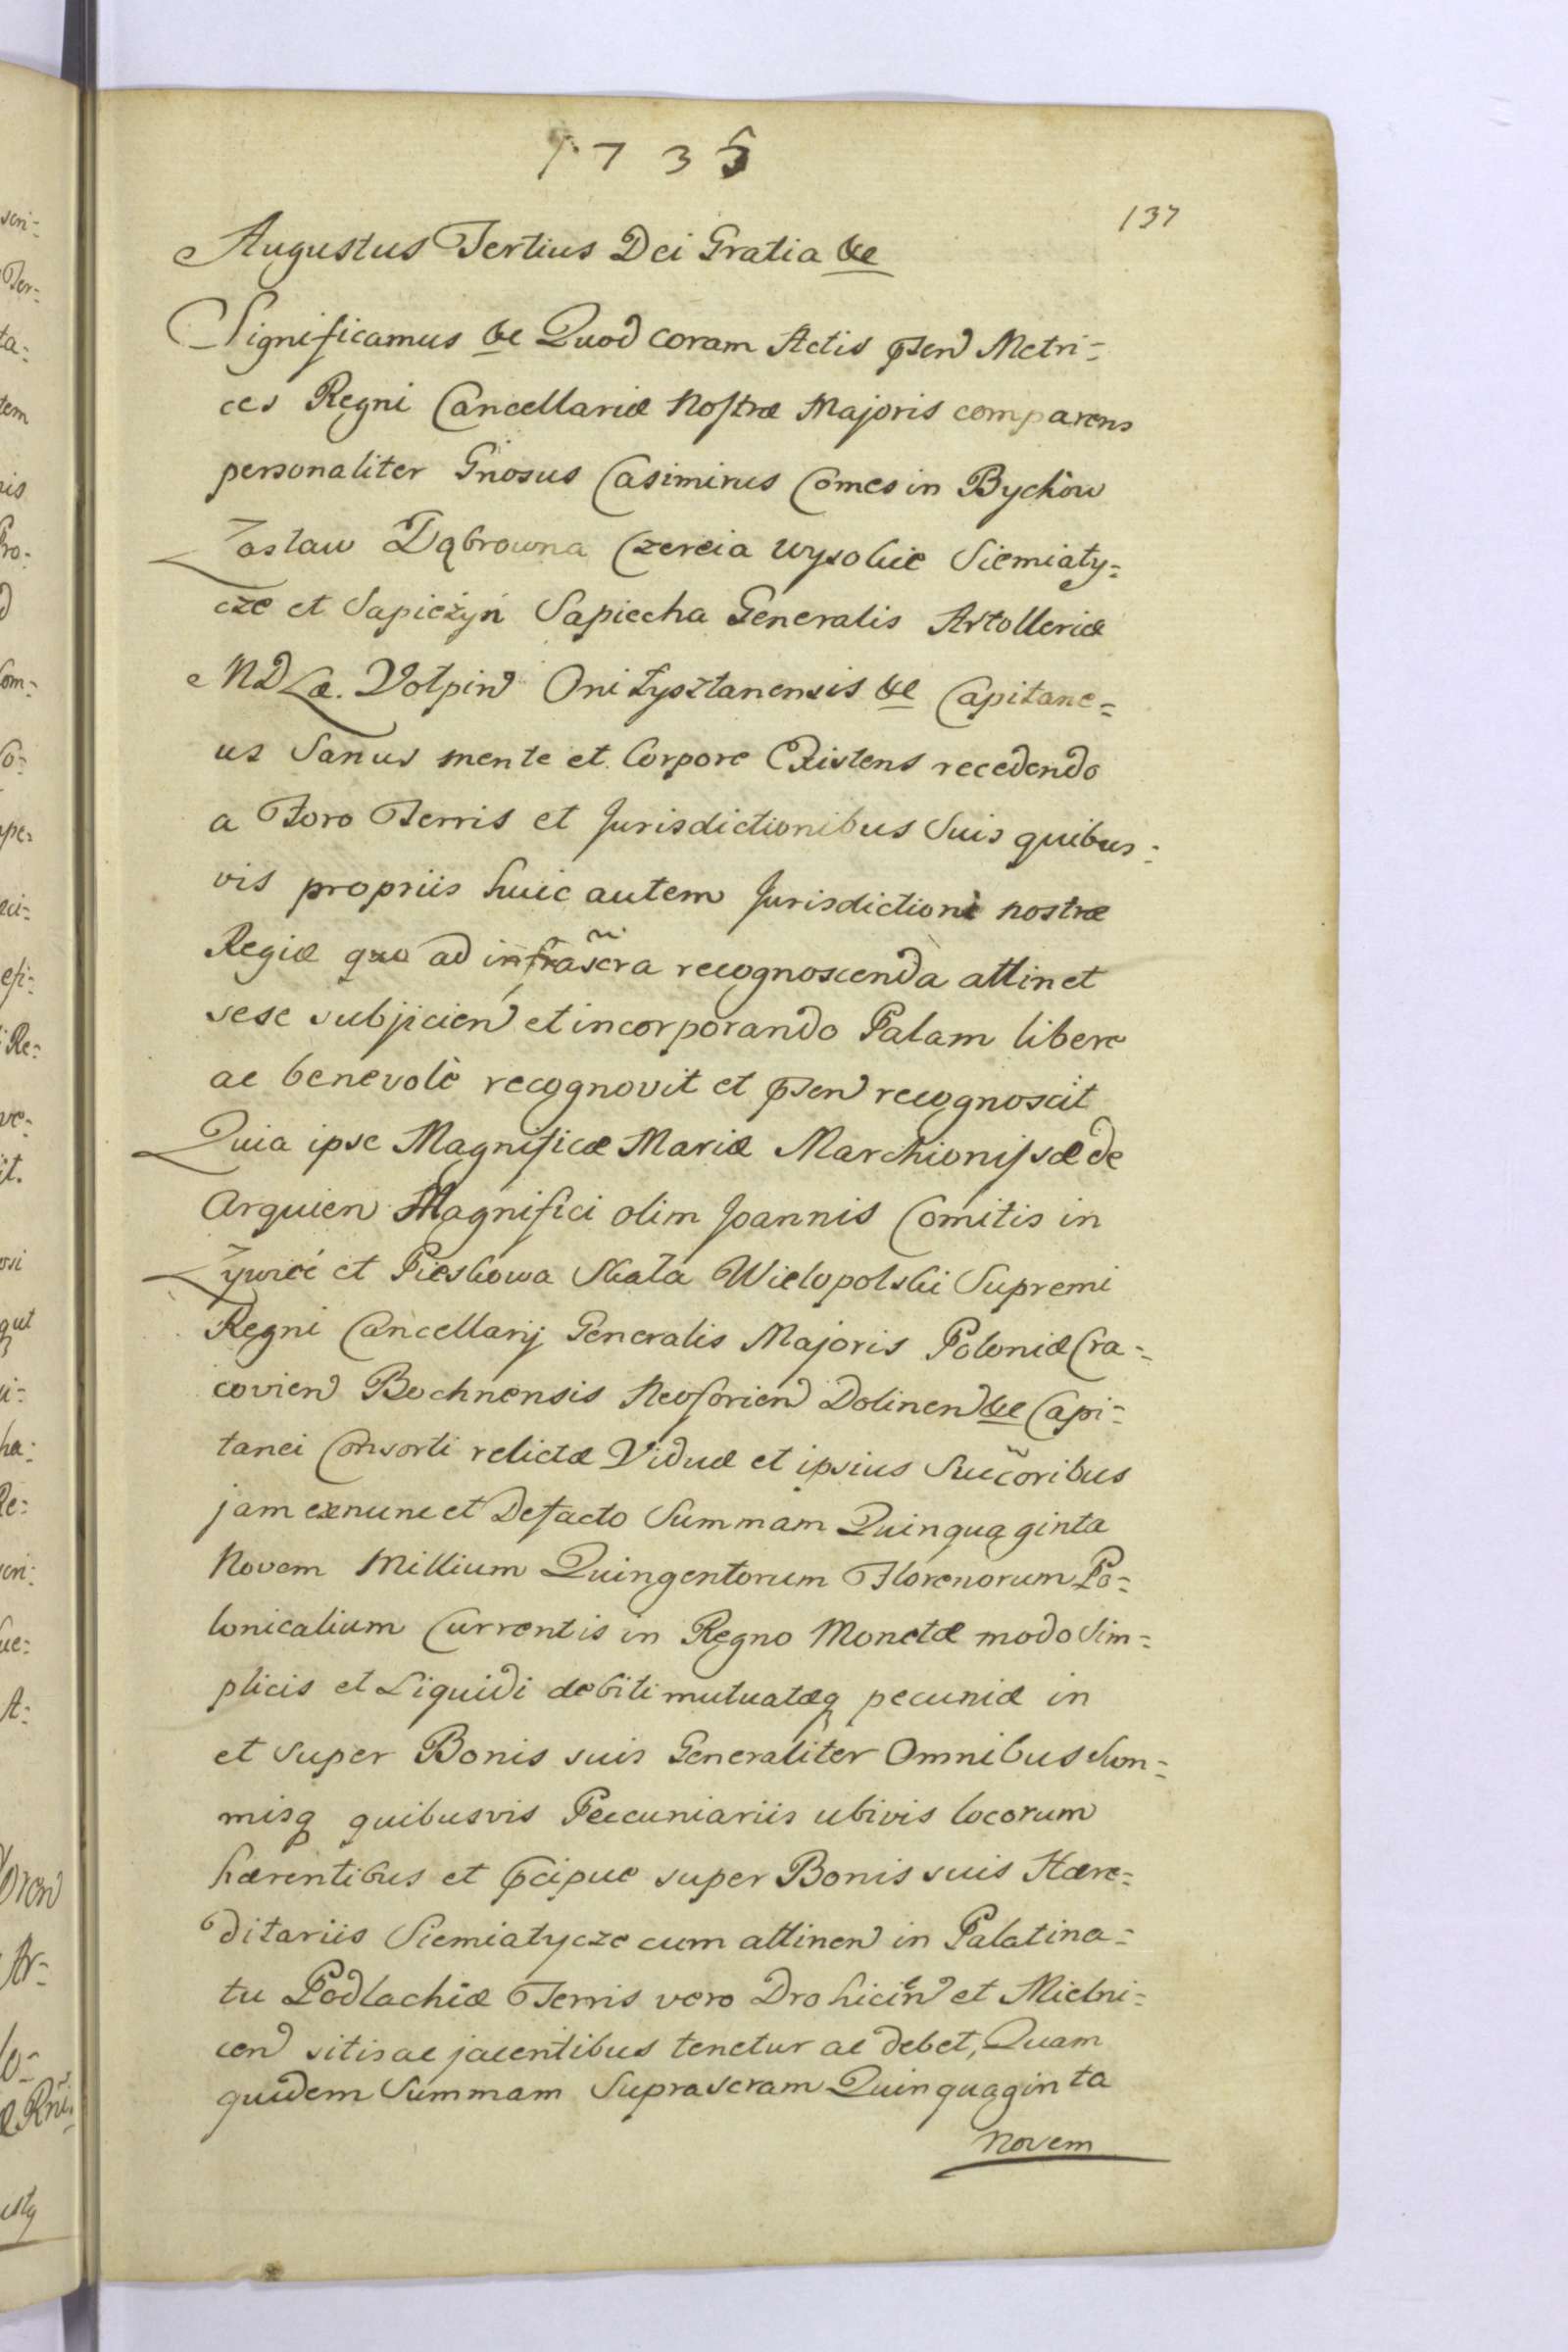 1735
137
Augustus Tertius Dei Gratia &c
Significamus &c Quod coram Actis psen Metri=
ces Regni Cancellariæ Nostræ Majoris comparens
personaliter Gnosus Casimirus Comes in Bychów
Zasław Dąbrowna Czereia Wysokie Siemiaty=
cze et Sapieżyń Sapiecha Generalis Artolleriæ
MDLæ. Wołpin Onikysztanensis &c Capitane=
us Sanus mente et Corpore Existens recedendo
a Foro Terris et Jurisdictionibus Suis quibus=
vis propriis huic autem Jurisdictioni nostræ
Regiæ quo ad infrascra recognoscenda attinet
sese subjicien et incorporando Palam libere
ac benevolè recognovit et psen recognoscit
Quia ipse Magnificæ Mariæ Marchionissæ de
Arquien Magnifici olim Joannis Comitis in
Żywiec et Pieskowa Skała Wielopolski Supremi
Regni Cancellarij Generalis Majoris Poloniæ Cra=
covien Bochnensis Neoforien Dolinen &c Capi=
tanei Consorti relictæ Viduæ et ipsius Succoribus
jam exnunc et Defacto Summam Quinquaginta
Novem Millium Quingentorum Florenorum Po=
lonicalium Currentis in Regno Monetæ modo Sim=
plicis et Liquidi debiti mutuatæq pecuniæ in
et super Bonis suis Generaliter Omnibus Sum=
misq quibusvis Peccuniariis ubivis locorum
hærentibus et pcipue super Bonis suis Hære=
ditariis Siemiatycze cum attinen in Palatina=
tu Podlachiæ Terris vero Drohicien et Mielni=
cen sitis ac jacentibus tenetur ac debet, Quam
quidem Summam Suprascram Quinquaginta
Novem